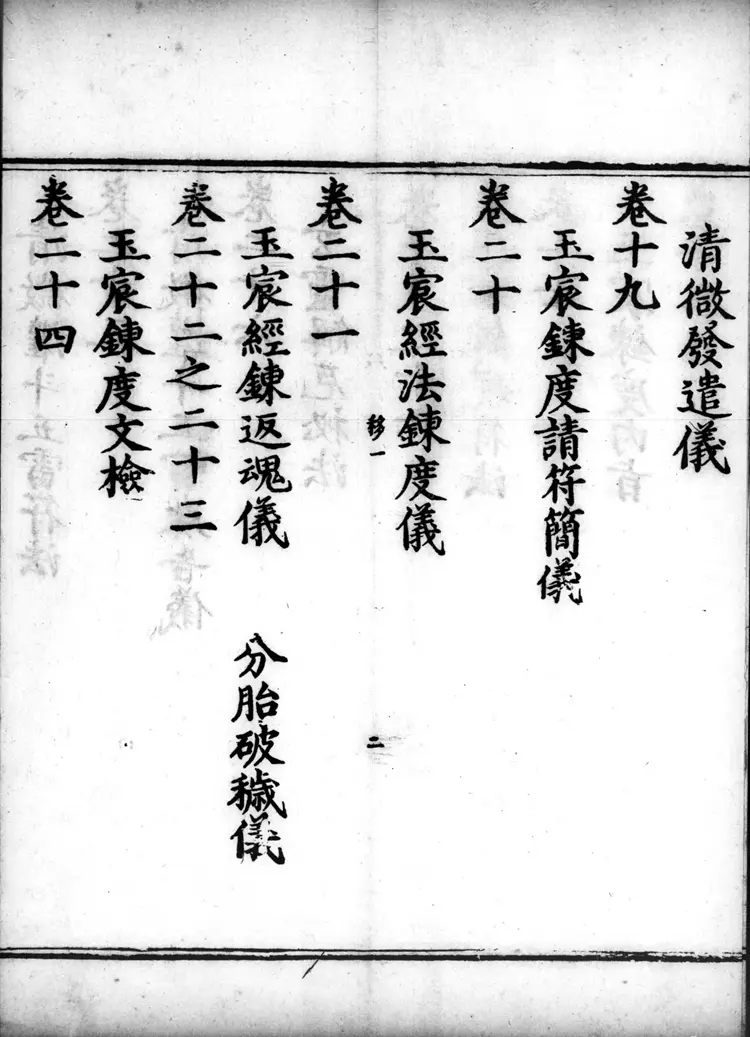 清微發遣儀
卷十九
玉宸鍊度請符簡儀
卷二十
玉宸經法鍊度儀
移一
二
卷二十一
玉宸經鍊返魂儀　分胎破穢儀
卷二十二之二十三
玉宸鍊度文檢
卷二十四